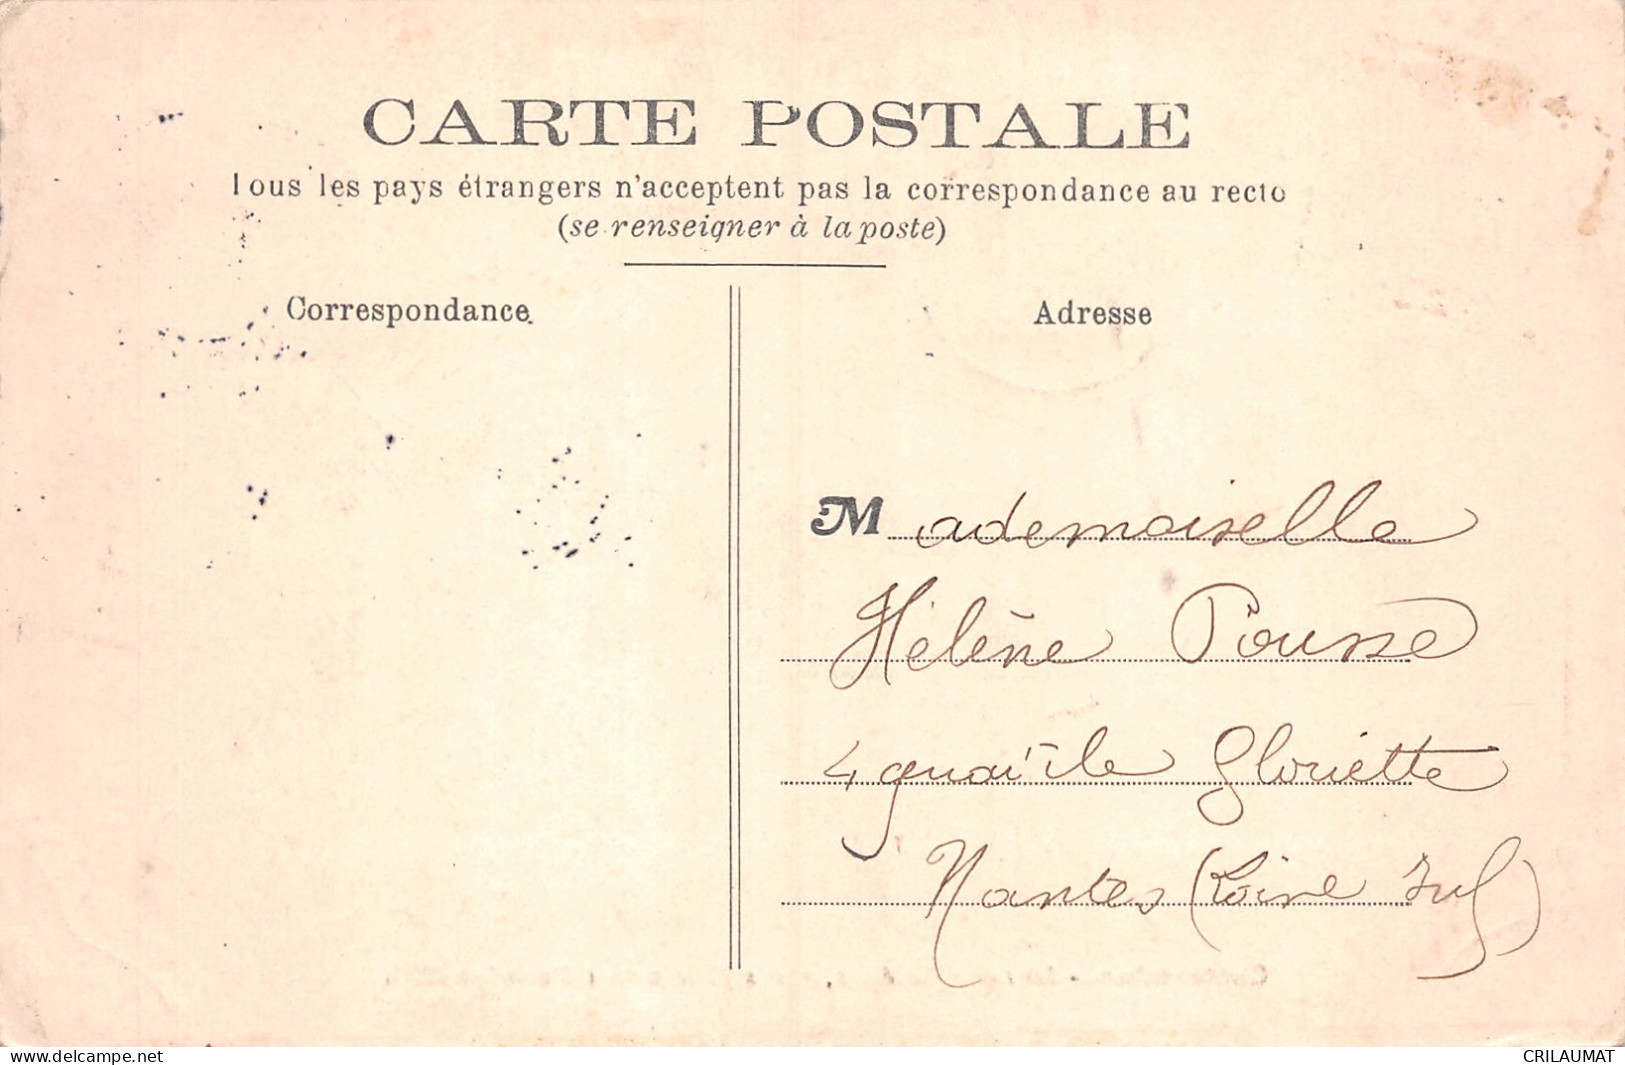 CARTE POSTALE
Tous les pays étrangers n'acceptent pas la correspondance au recto
(se renseigner à la poste)
Correspondance.
Adresse
Mademoiselle
Hélène Pousse
4 quai île Gloriette
Nantes (Loire Inf)
www.delcampe.net
CRILAUMAT